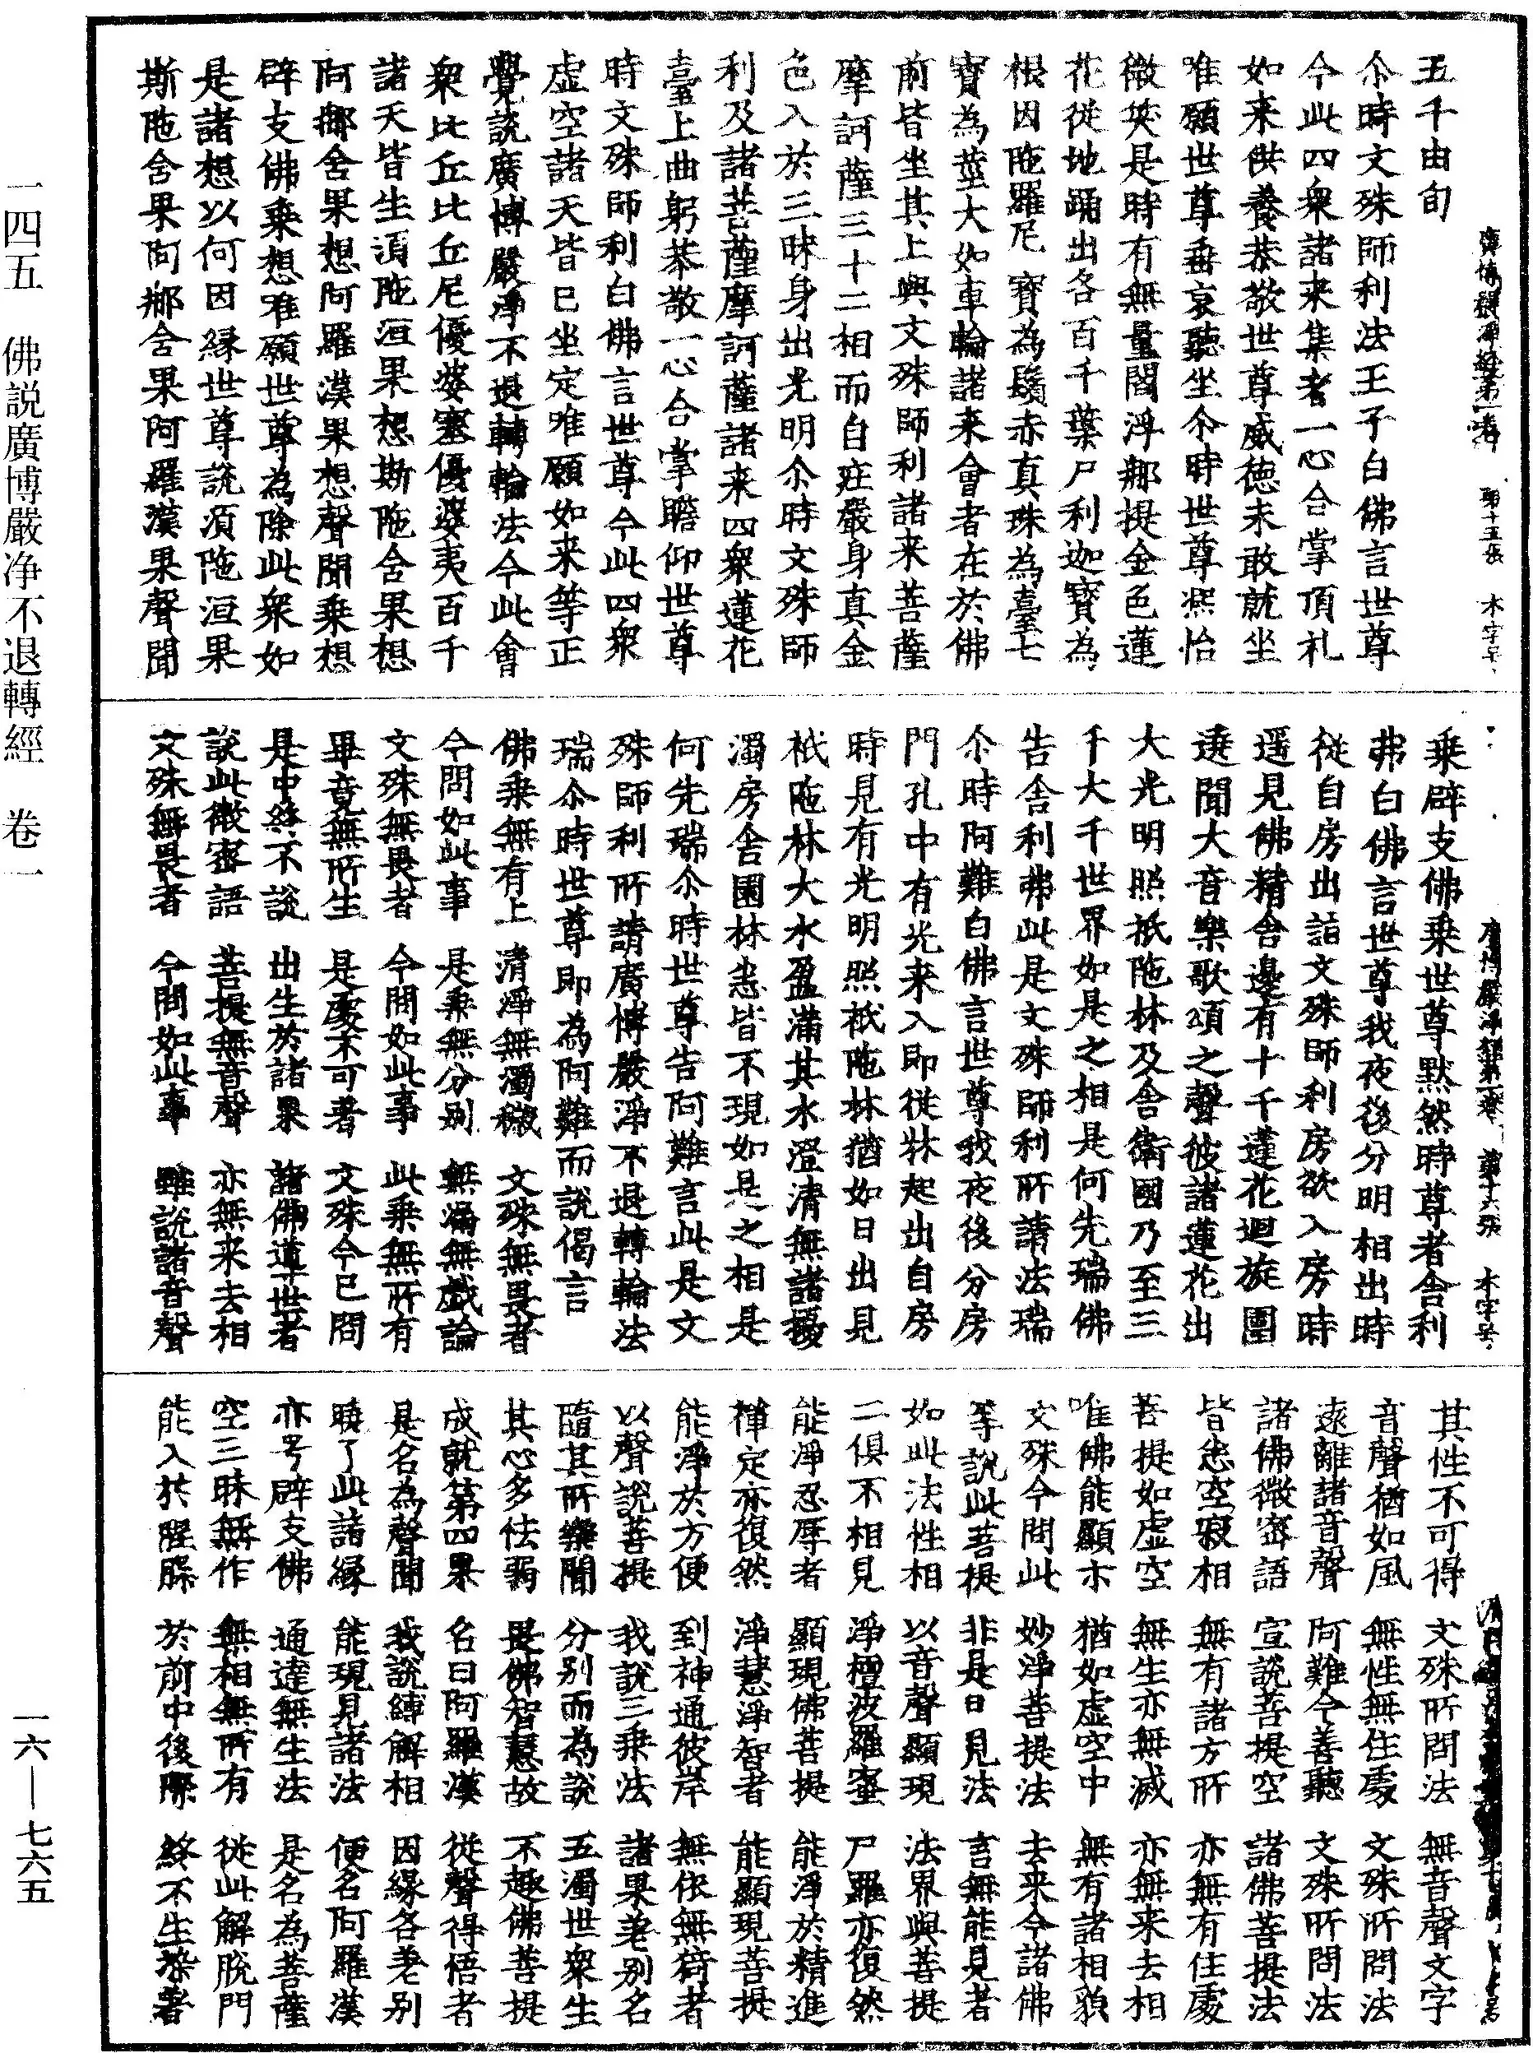 五千由旬
尒時文殊師利法王子白佛言世尊
今此四衆諸来集者一心合掌頂礼
如来供養恭敬世尊威德未敢就坐
唯願世尊垂哀聽坐尒時世尊熈怡
微𥬇是時有無量閻浮那提金色蓮
花從地踊出各百千葉尸利迦寶為
根因陁羅尼寶為鬚赤真珠為臺七
寶為莖大如車輪諸来會者在於佛
前皆坐其上與文殊師利諸来菩薩
摩訶薩三十二相而自莊嚴身真金
色入於三昧身出光明尒時文殊師
利及諸菩薩摩訶薩諸来四衆蓮花
臺上曲躬恭敬一心合掌瞻仰世尊
時文殊師利白佛言世尊今此四衆
虚空諸天皆已坐定唯願如来等正
覺說廣博嚴淨不退轉輪法今此會
衆比丘比丘尼優婆塞優婆夷百千
諸天皆生湏陁洹果想斯陁含果想
阿那含果想阿羅漢果想聲聞乗想
辟支佛乗想唯願世尊為除此衆如
是諸想以何因縁世尊說湏陁洹果
斯陁含果阿那含果阿羅漢果聲聞
廣博嚴淨經第一卷 第十五張 木字号
乗辟支佛乗世尊默然時尊者舍利
弗白佛言世尊我夜後分明相出時
從自房出詣文殊師利房欲入房時
遥見佛精舍邊有十千蓮花迴旋圍
遶聞大音樂歌頌之聲彼諸蓮花出
大光明照祇陁林及舍衛國乃至三
千大千世界如是之相是何先瑞佛
告舍利弗此是文殊師利所請法瑞
尒時阿難白佛言世尊我夜後分房
門孔中有光来入即從牀起出自房
時見有光明照祇陁林猶如日出見
祇陁林大水盈滿其水澄清無諸擾
濁房舍園林悉皆不現如是之相是
何先瑞尒時世尊告阿難言此是文
殊師利所請廣博嚴淨不退轉輪法
瑞尒時世尊即為阿難而說偈言
佛乗無有上 清淨無濁穢 文殊無畏者
今問如此事 是乗無分别 無漏無戲論
文殊無畏者 今問如此事 此乗無所有
畢竟無所生 是處不可著 文殊今已問
是中終不說 出生於諸果 諸佛導世者
說此微密語 菩提無音聲 亦無来去相
文殊無畏者 今問如此事 雖說諸音聲
廣博嚴淨經第一卷 第十六張 木字号
其性不可得 文殊所問法 無音聲文字
音聲猶如風 無性無住處 文殊所問法
遠離諸音聲 阿難今善聽 文殊所問法
諸佛微密語 宣說菩提空 諸佛菩提法
皆悉空寂相 無有諸方所 亦無有住處
菩提如虚空 無生亦無滅 亦無来去相
唯佛能顯示 猶如虚空中 無有諸相貌
文殊今問此 妙淨菩提法 去来今諸佛
等說此菩提 非是日見法 言無能見者
如此法性相 以音聲顯現 法界與菩提
二俱不相見 淨檀波羅蜜 尸羅亦復然
能淨忍辱者 顯現佛菩提 能淨於精進
禅定亦復然 淨慧淨智者 能顯現菩提
能淨於方便 到神通彼岸 無依無著者
以聲說菩提 我說三乗法 諸果差别名
隨其所樂聞 分别而為說 五濁世衆生
其心多怯弱 畏佛智慧故 不趣佛菩提
成就第四果 名曰阿羅漢 從聲得悟者
是名為聲聞 我說縛解相 因縁各差别
暁了此諸縁 能現見諸法 便名阿羅漢
亦号辟支佛 通達無生法 是名為菩薩
空三昧無作 無相無所有 從此解脫門
能入於䏁䐑 於前中後際 終不生染著
一四五 佛説廣博嚴净不退轉經 卷一
一六—七六五